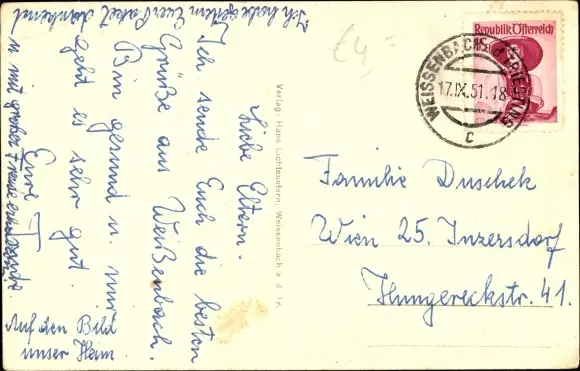 Liebe Eltern.
Ich sende Euch die besten
Grüße aus Weißenbach.
Bin gesund u. mir
geht es sehr gut.
Eure
Ich habe gestern Euer Paket dankend
u. mit großer Freude
Auf den Bild
unser Heim
Verlag: Hans Lichtenstern, Weissenbach a. d. Tr.
€4
Republik Österreich
WEISSENBACH a. d. TRIESTING
17.IX.51.18
c
Familie Duschek
Wien 25. Inzersdorf
Hungereckstr. 41.